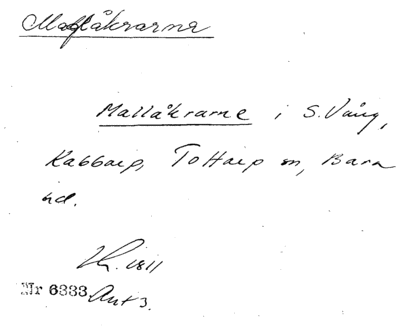 Mallåkrarne i S. Vång,
Kabbarp, Tottarp sn, Bara
hd.
1811
Nr 6333 Akt 3.